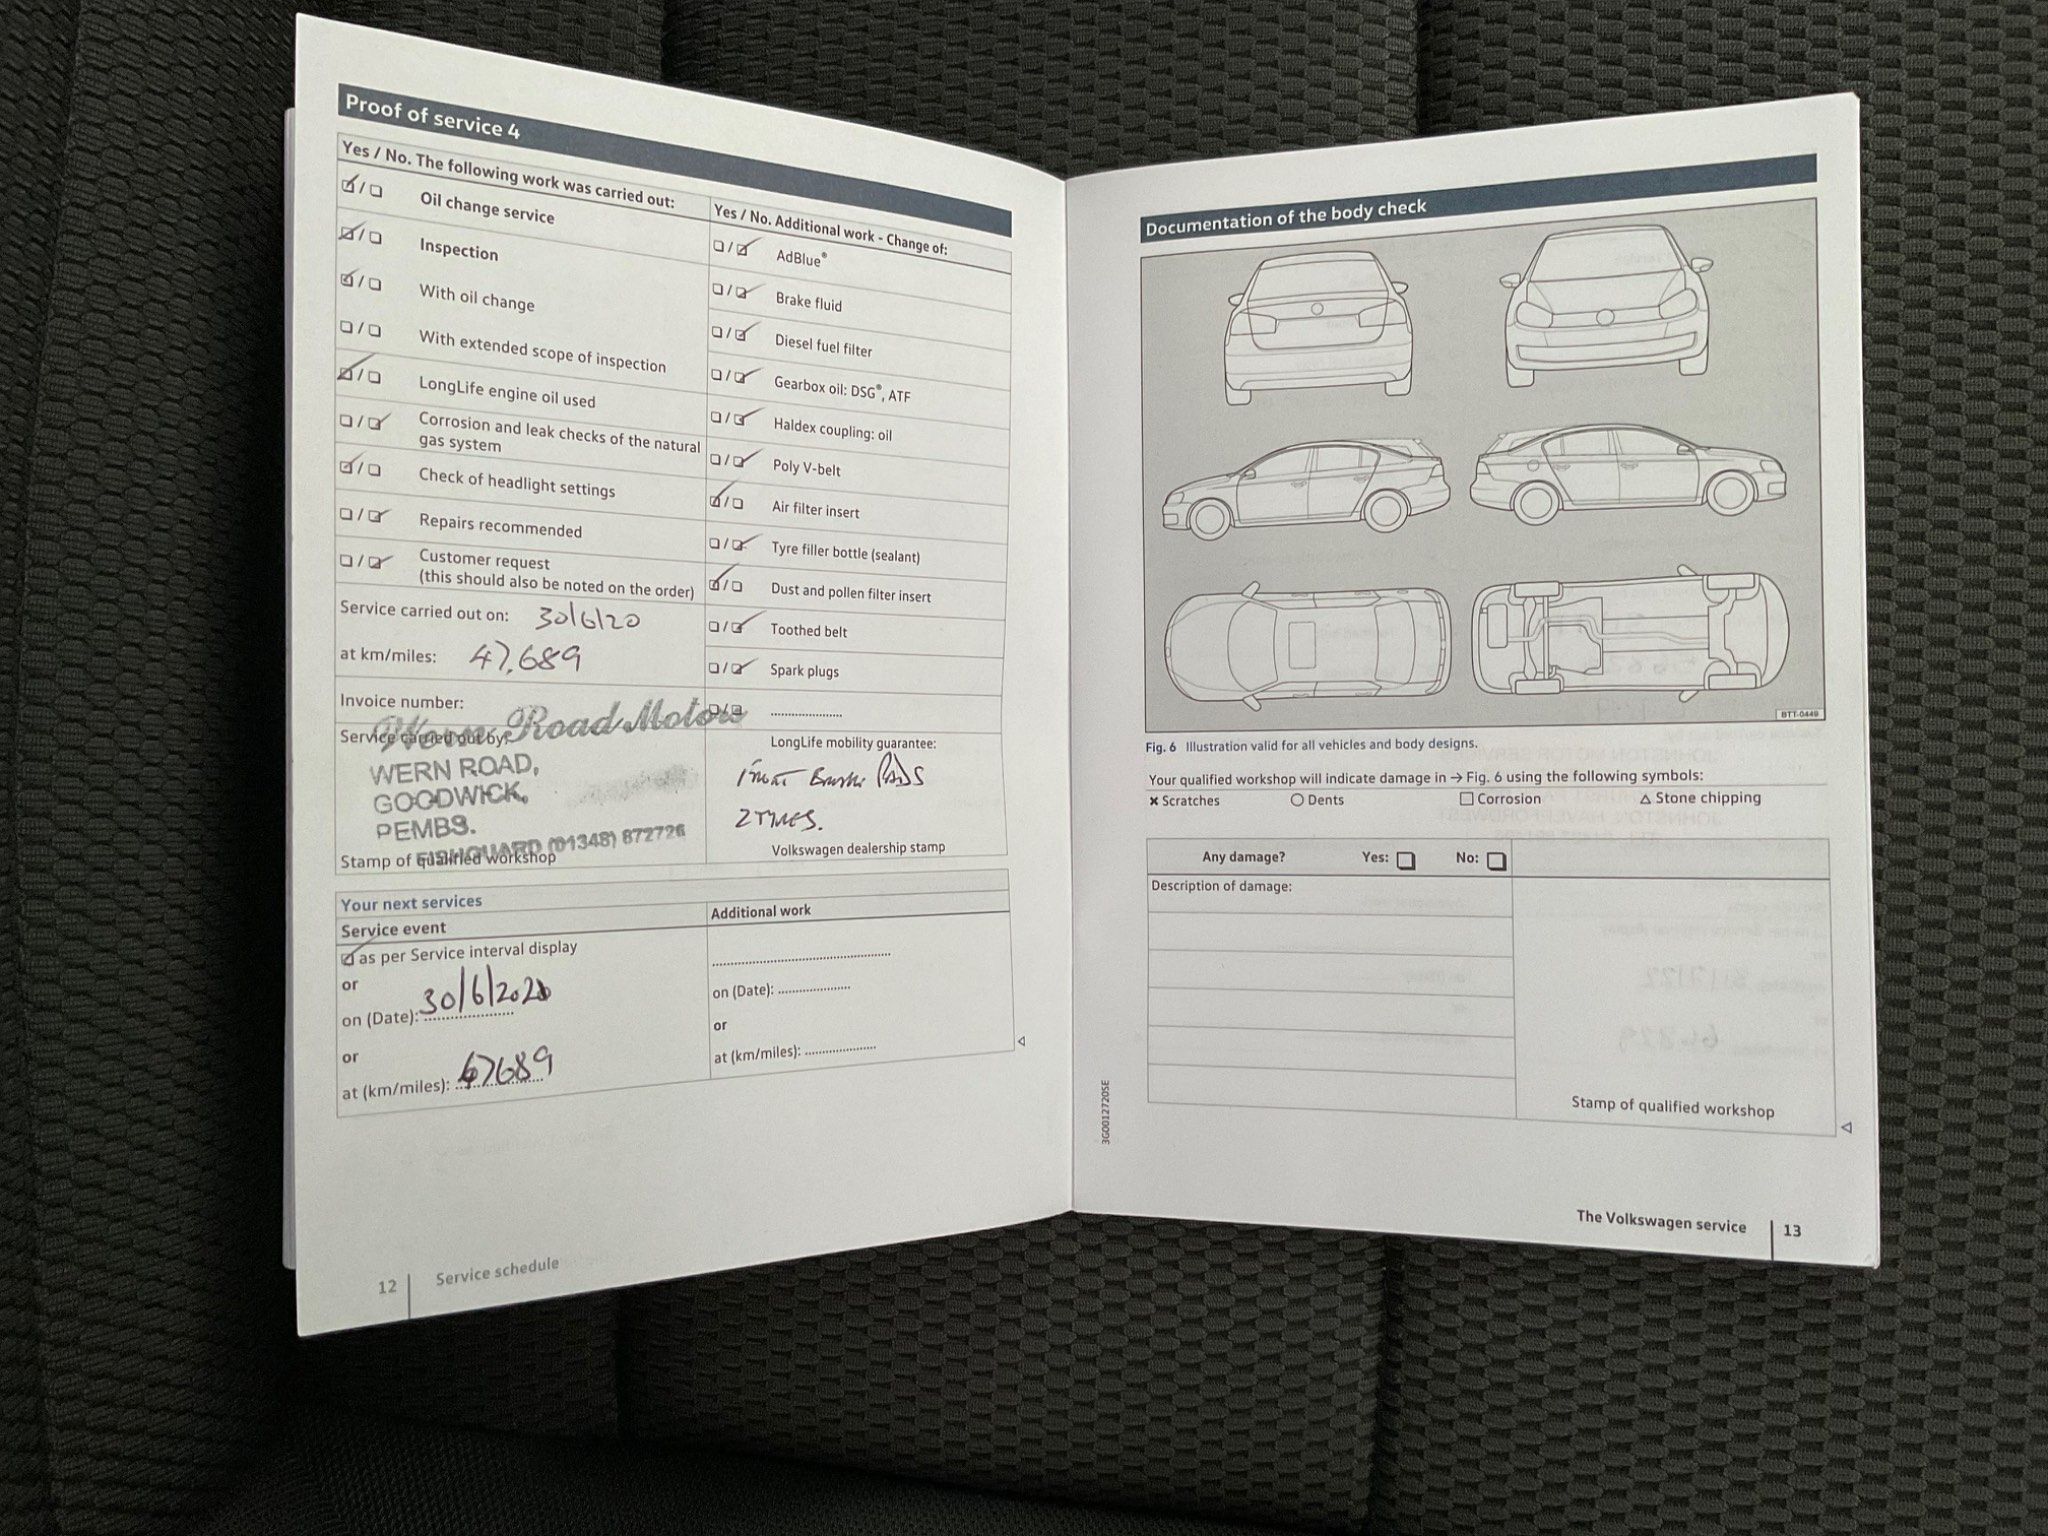 Proof of service 4
Yes / No. The following work was carried out:
Oil change service
Inspection
With oil change
With extended scope of inspection
LongLife engine oil used
Corrosion and leak checks of the natural
gas system
Check of headlight settings
Repairs recommended
Customer request
(this should also be noted on the order)
Service carried out on: 30/6/20
at km/miles: 47,689
Invoice number:
Wern Road Motors
Service carried out by:
WERN ROAD,
GOODWICK,
PEMBS.
FISHGUARD (01348) 872726
Stamp of qualified workshop
Yes / No. Additional work - Change of:
AdBlue®
Brake fluid
Diesel fuel filter
Gearbox oil: DSG®, ATF
Haldex coupling: oil
Poly V-belt
Air filter insert
Tyre filler bottle (sealant)
Dust and pollen filter insert
Toothed belt
Spark plugs
....................
LongLife mobility guarantee:
Front Brake Pads
2 TYRES.
Volkswagen dealership stamp
Your next services
Service event
as per Service interval display
or
on (Date): 30/6/2021
or
at (km/miles): 67689
Additional work
on (Date): ....................
or
at (km/miles): ....................
12 | Service schedule
Documentation of the body check
BTT-0449
Fig. 6 Illustration valid for all vehicles and body designs.
Your qualified workshop will indicate damage in → Fig. 6 using the following symbols:
× Scratches ○ Dents □ Corrosion △ Stone chipping
Any damage? Yes: □ No: □
Description of damage:
Stamp of qualified workshop
3G0012720SE
The Volkswagen service | 13